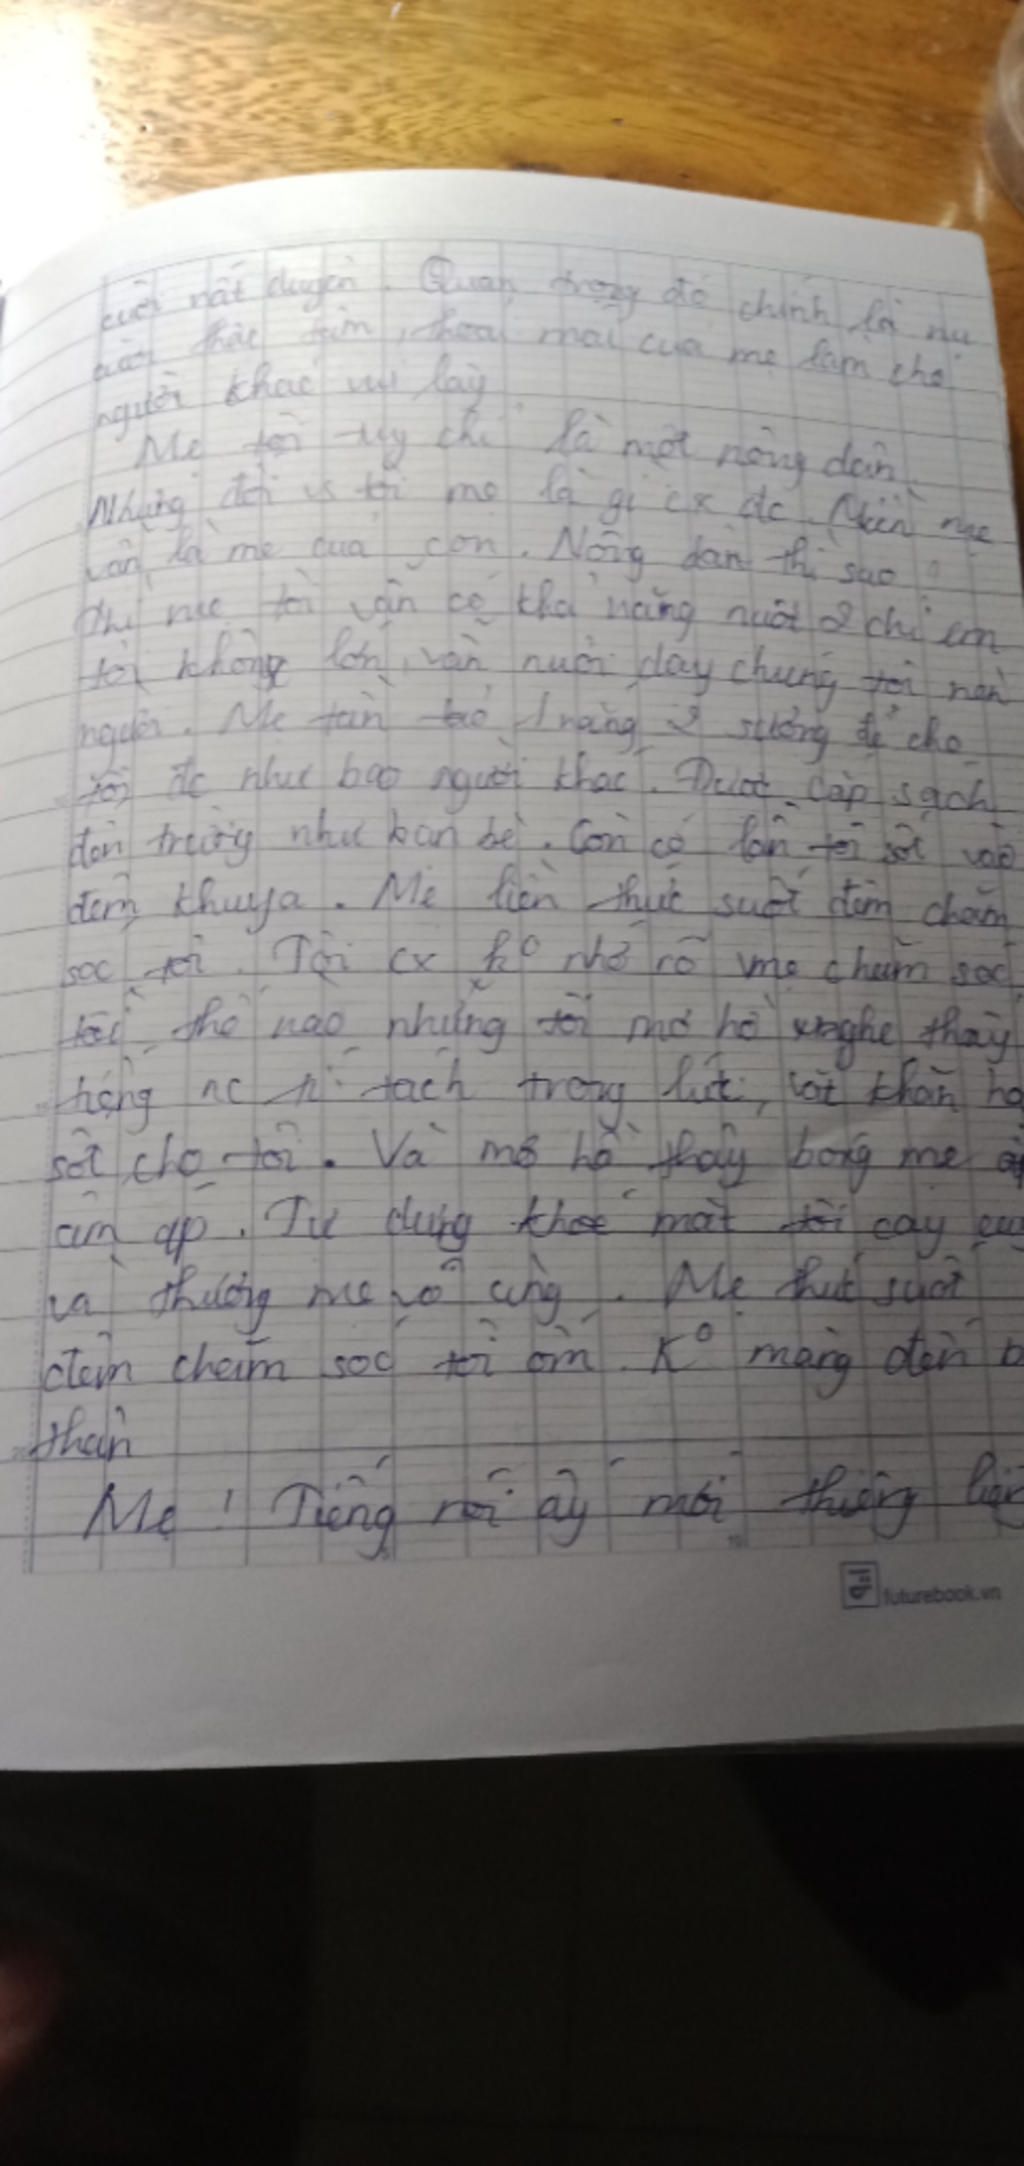 cười rất duyên. Quan trọng đó chính là nụ
cười mẹ của mẹ làm cho
người khác vui lây
Mẹ tôi tuy chỉ là một nông dân
Nhưng đối vs tôi mẹ là gì cx đc. Miễn mẹ
vẫn là mẹ của con. Nông dân thì sao?
Thì mẹ tôi vẫn có khả năng nuôi 2 chị em
tôi khôn lớn, vẫn nuôi dạy chúng tôi nên
người. Mẹ tần tảo 1 nắng 2 sương để cho
tôi đc như bao người khác. Được cắp sách
đến trường như bạn bè. Còn có lần tôi sốt vào
đêm khuya. Mẹ liền thức suốt đêm chăm
sóc tôi. Tôi cx k° nhớ rõ mẹ chăm sóc
tôi thế nào nhưng tôi mơ hồ nghe thấy
nc tí tách trong , vắt khăn hạ
sốt cho tôi. Và mơ hồ thấy bóng mẹ
ấm áp. Tự dưng khoé mắt tôi cay
và thương mẹ vô cùng. Mẹ thức suốt
đêm chăm sóc tôi ốm. K° màng đến b
thân
Mẹ! Tiếng nói ấy mới thiêng liên
futurebook.vn